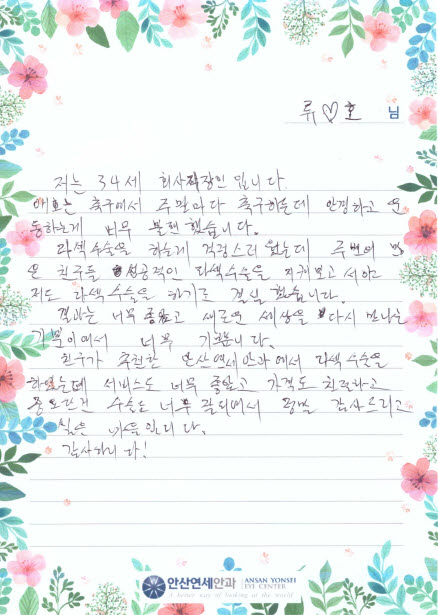 류♡호 님
저는 34세 회사직장인입니다.
축구에서 주말마다 축구하는데 안경하고 운
동하는게 너무 불편했습니다.
라섹수술을 하는게 걱정스러웠는데 주변의 많
은 친구들 성공적인 라섹수술을 지켜보고 서야
저도 라섹수술을 하기로 결심했습니다.
결과는 너무 좋았고 새로운 세상을 다시 만나는
기분이여서 너무 기쁩니다.
친구가 추천한 안산연세안과에서 라섹수술을
하였는데 서비스도 너무 좋았고 가격도 친절하고
중요한건 수술도 너무 잘되여서 정말 감사드리고
싶은 마음입니다.
감사합니다!
안산연세안과 ANSAN YONSEI EYE CENTER
A better way of looking at the world